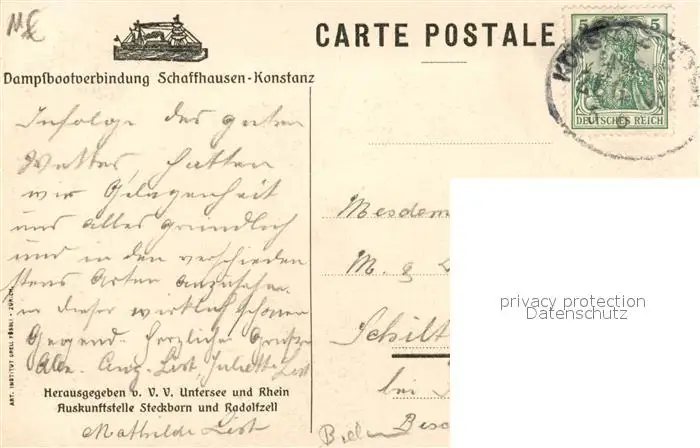 CARTE POSTALE
Dampfbootverbindung Schaffhausen-Konstanz
5 5
DEUTSCHES REICH
KONSTANZ
Infolge des guten
Wetters, hatten
wir Gelegenheit
uns alles gründlich
und in den verschieden
stens Arten anzusehen
in dieser wirklich schönen
Gegend. Herzliche Grüsse
Alex. Aug. List, Juliette List
Mathilde List
Mesdem
M. &
Schilt
bei
Herausgegeben v. V. V. Untersee und Rhein
Auskunftstelle Steckborn und Radolfzell
ART. INSTITUT ORELL FÜSSLI - ZÜRICH
privacy protection
Datenschutz